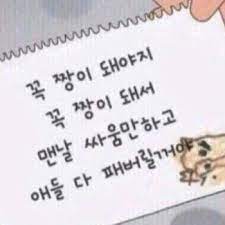 꼭 짱이 돼야지
꼭 짱이 돼서
맨날 싸움만하고
애들 다 패버릴거야